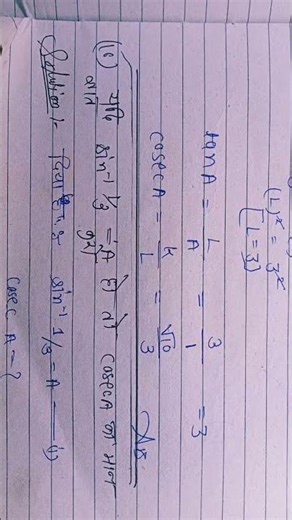 (L)² = 3²
[L = 3]
tanA = L/A = 3/1 = 3
cosecA = K/L = √10/3 Ans
(ii) यदि sin⁻¹ 1/3 = A हो तो cosecA का मान
ज्ञात करो
Solution :- दिया है sin⁻¹ 1/3 = A —(1)
cosec A = ?